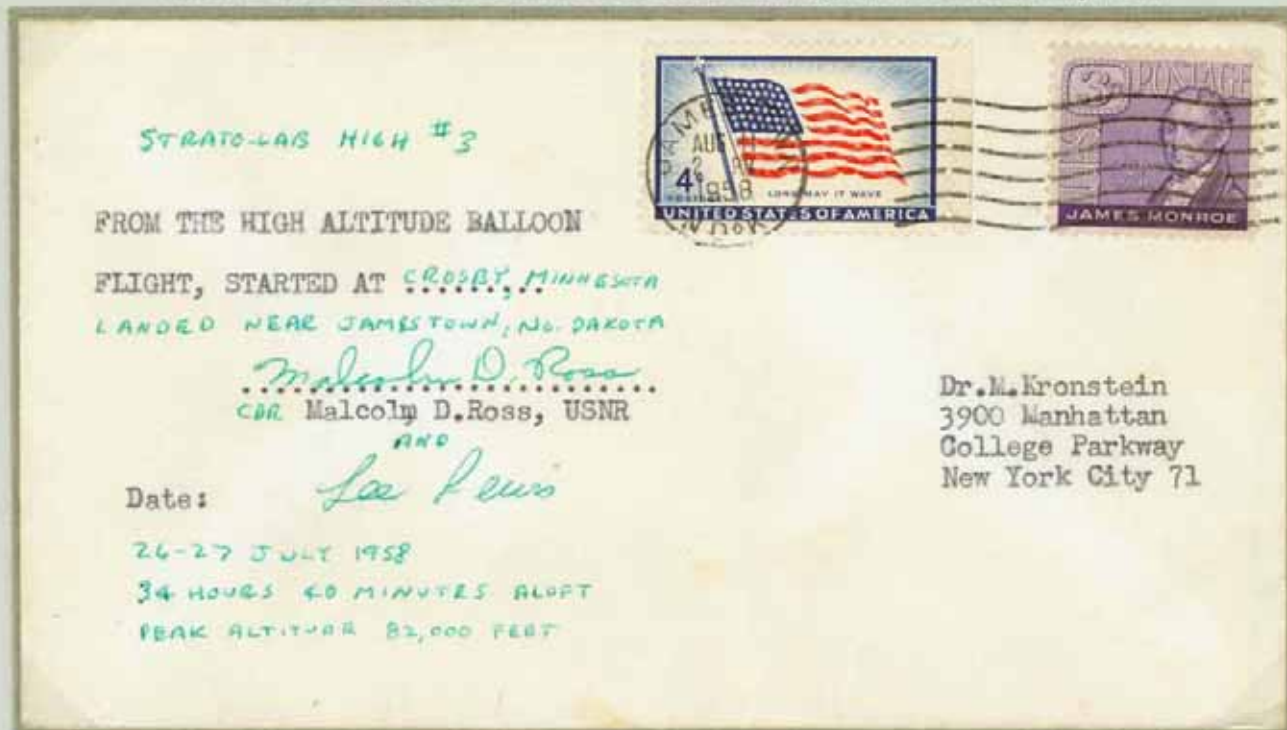 STRATO-LAB HIGH #3
FROM THE HIGH ALTITUDE BALLOON
FLIGHT, STARTED AT CROSBY, MINNESOTA
LANDED NEAR JAMESTOWN, NO. DAKOTA
Malcolm D. Ross
CDR Malcolm D.Ross, USNR
AND
Lee Lewis
Date:
26-27 JULY 1958
34 HOURS 40 MINUTES ALOFT
PEAK ALTITUDE 82,000 FEET
AUG 11
1958
4¢
LONG MAY IT WAVE
UNITED STATES OF AMERICA
3¢ POSTAGE
JAMES MONROE
Dr.M.Kronstein
3900 Manhattan
College Parkway
New York City 71